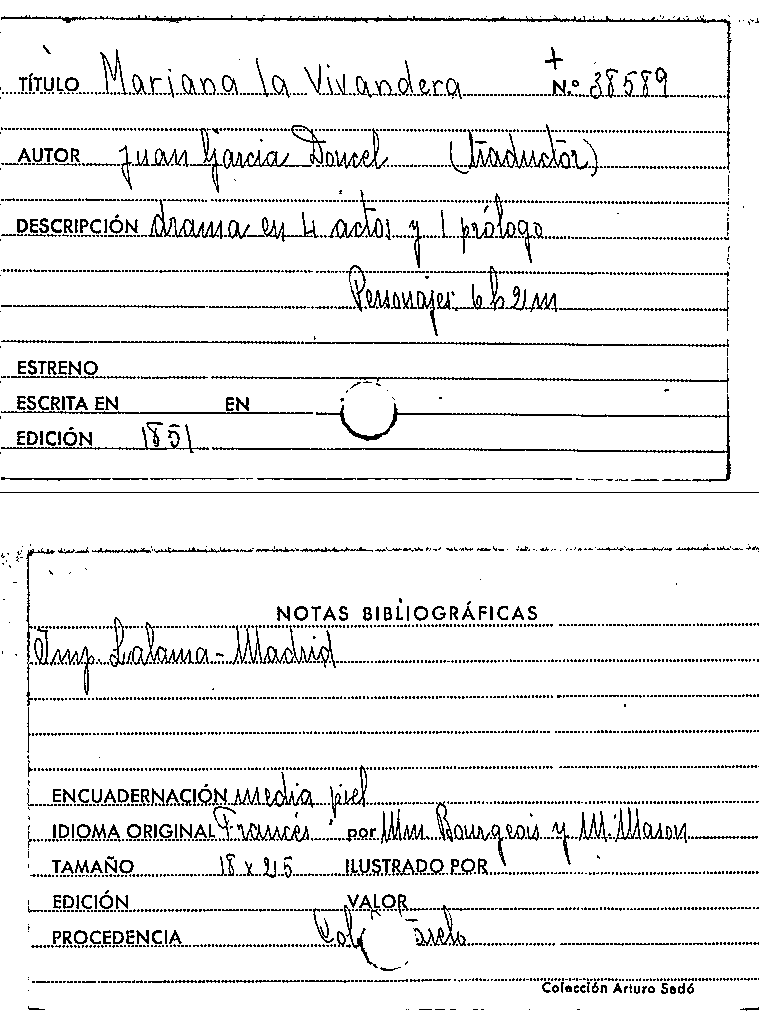 TÍTULO Mariana la Vivandera +
N.º 38589
AUTOR Juan Garcia Doncel (traductor)
DESCRIPCIÓN drama en 4 actos y 1 prólogo
Personajes 6 h 2 m
ESTRENO
ESCRITA EN EN
EDICIÓN 1851
NOTAS BIBLIOGRÁFICAS
Imp. Lalama - Madrid
ENCUADERNACIÓN media piel
IDIOMA ORIGINAL Francés por Mm Bourgeois y M. Mason
TAMAÑO ILUSTRADO POR
EDICIÓN VALOR
PROCEDENCIA
Colección Arturo Sedó